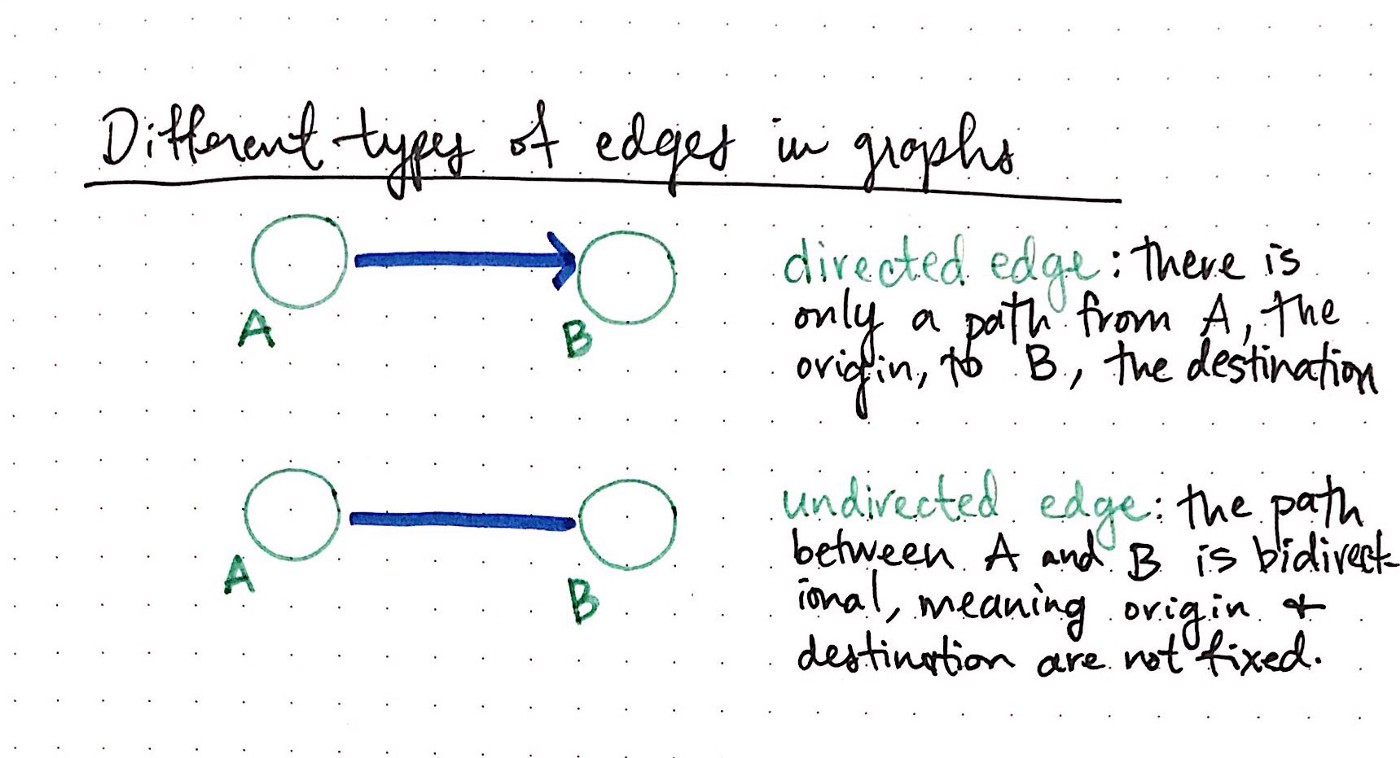 Different types of edges in graphs
A
B
directed edge: there is
only a path from A, the
origin, to B, the destination
A
B
undirected edge: the path
between A and B is bidirect-
ional, meaning origin &
destination are not fixed.